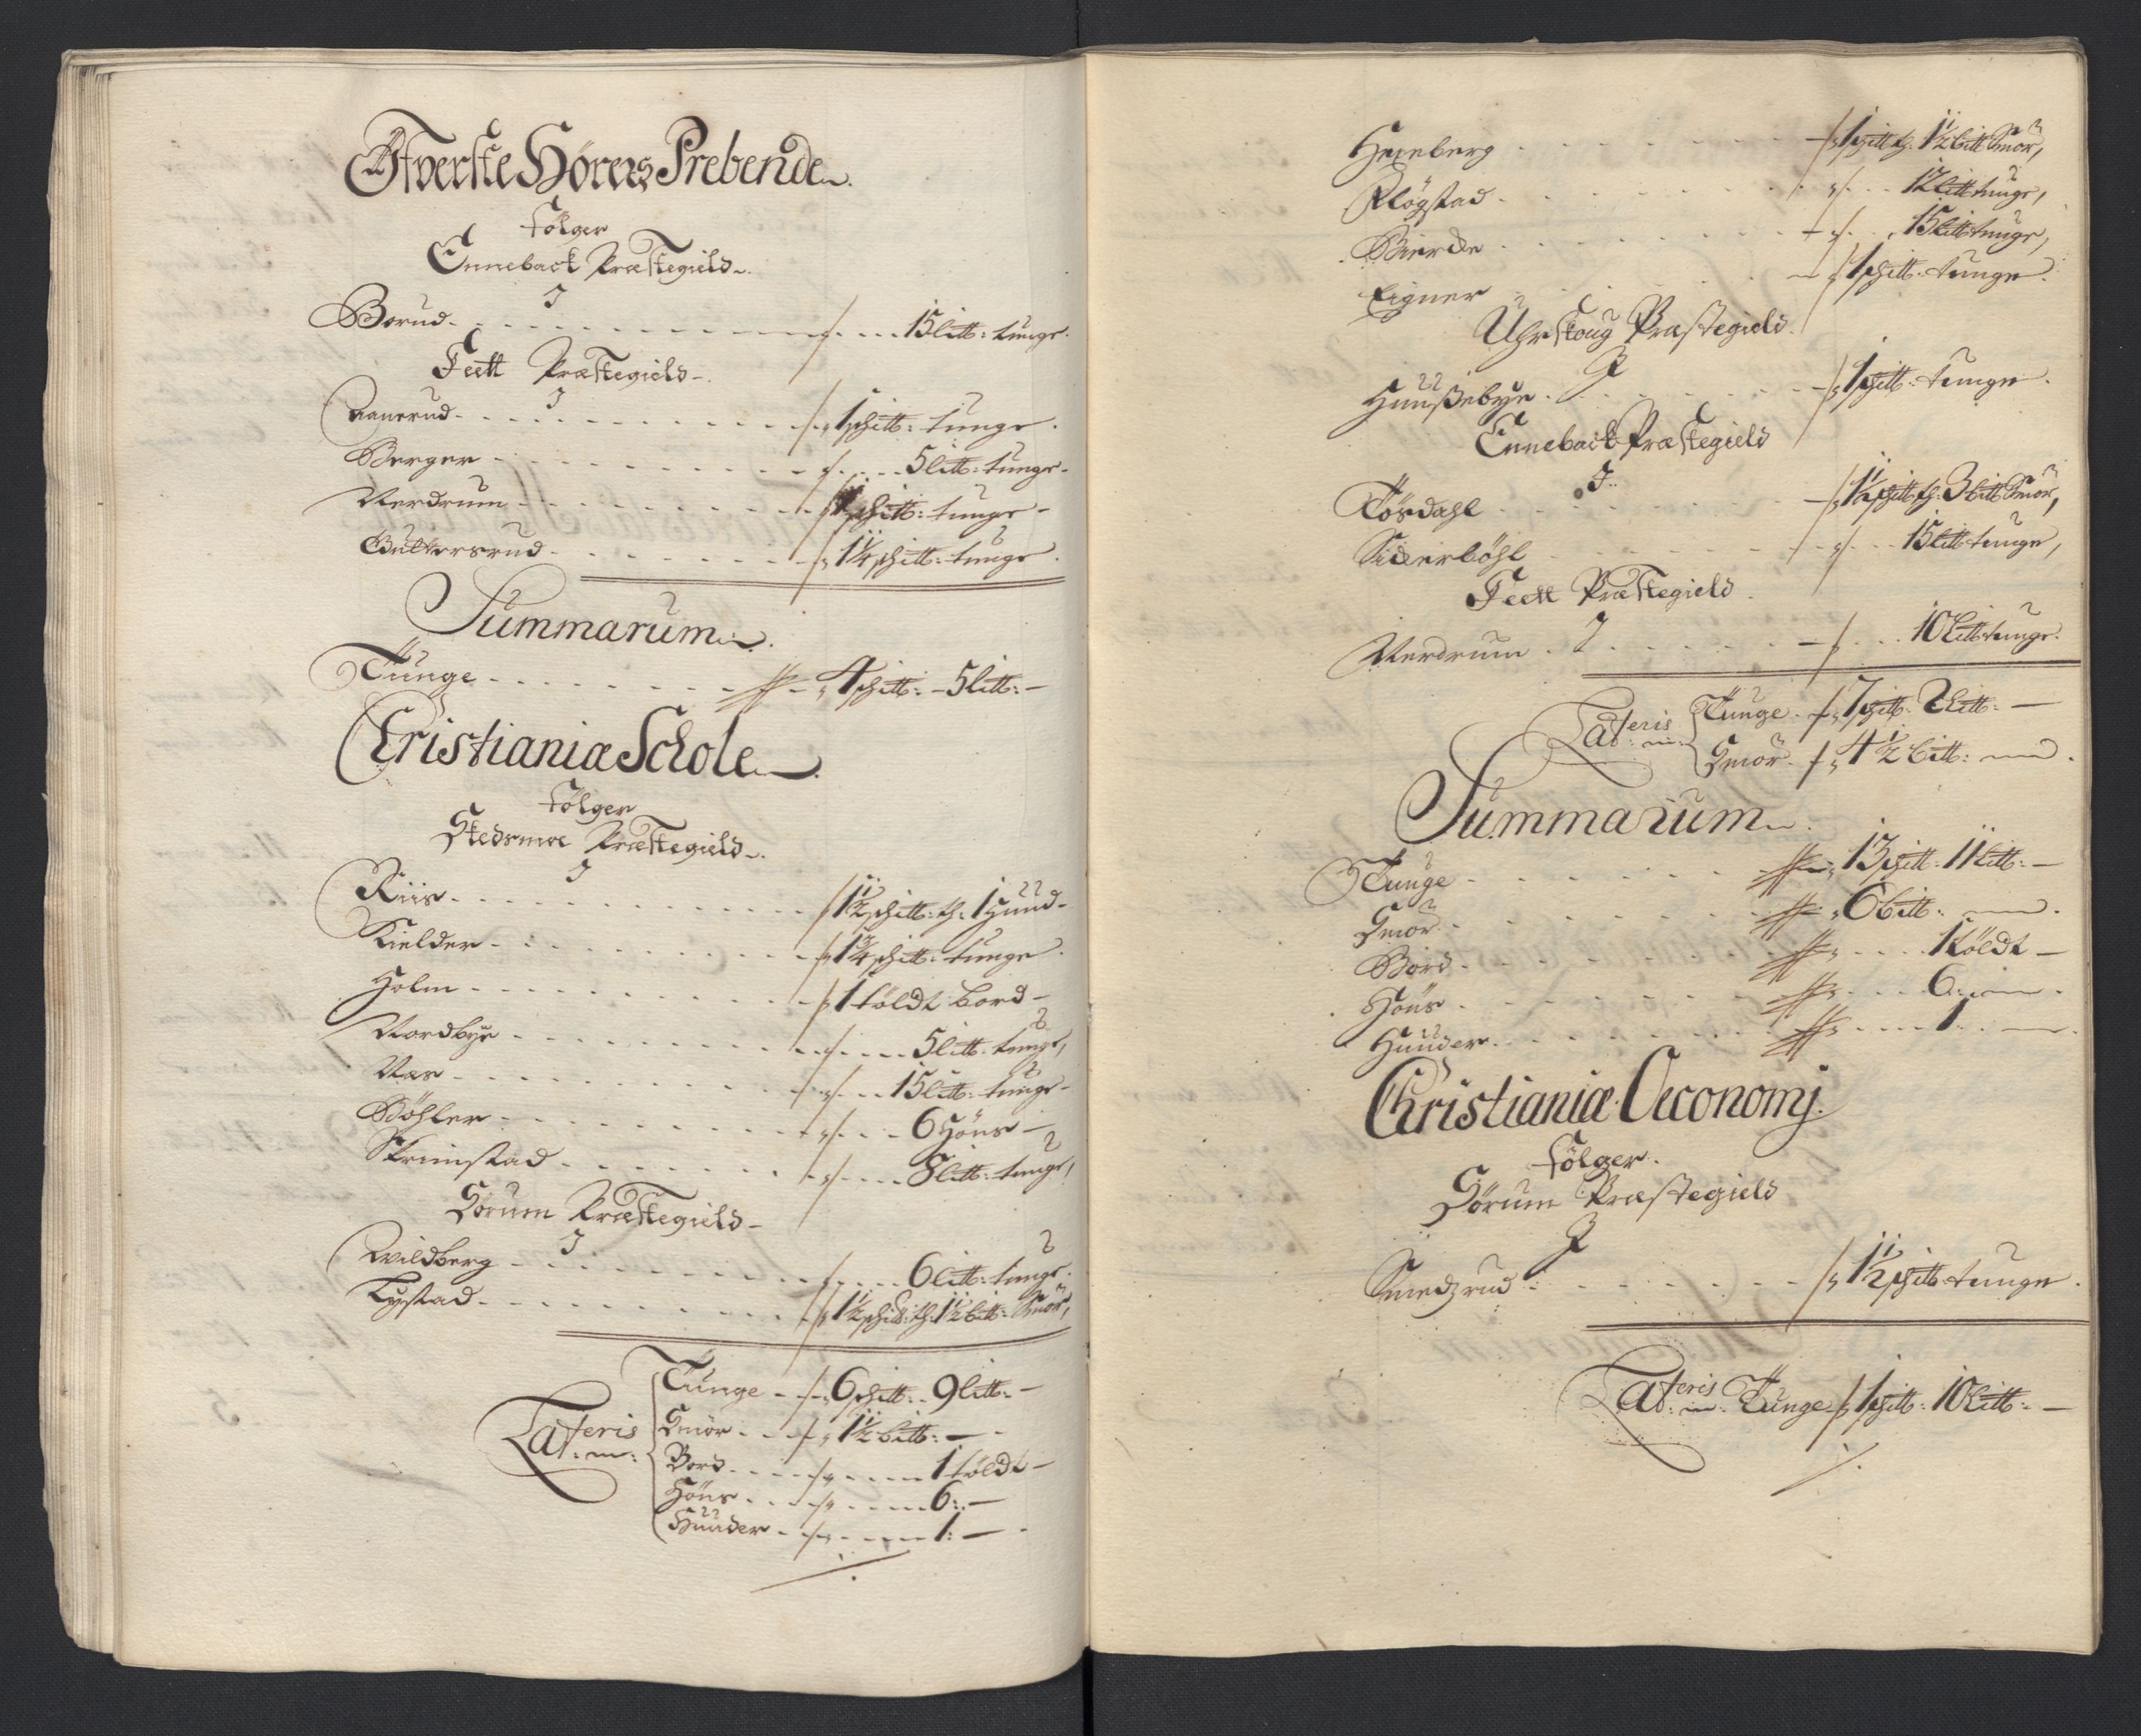 Øfverste Hörers Prebende
følger
Enneback Præstegield
I
Borud - 15 litt: tunge
Feett Præstegield
I
Aanerud - 1 schitt: tunge
Berger - 5 litt: tunge
Nerdrum - schitt: tunge
Gultersrud - 1¼ schitt: tunge
Summarum
Tunge - 4 schitt: 5 litt:
Christianiæ Schole
følger
Skedsmoe Præstegield
I
Riis - 1½ schitt: tg: 1 Huud
Kielder - 1¾ schitt: tunge
Holm - 1 töldt bord
Nordbye - 5 litt: tunge,
Næs - 15 litt: tunge
Böhler - 6 Höns
Skrimstad - 8 litt: tunge,
Sörum Præstegield
I
Wildberg - 6 litt: tunge
Lystad - 1½ schitt: tg: 1½ bitt: Smör,
Lateris
Tunge - 6 schitt: 9 litt:
Smör - 1½ bitt:
Bord - 1 töldt
Höns - 6:
Huuder - 1:
Hexeberg - 1 schitt tg: 1½ bitt Smör,
Plögstad - 12 litt tunge,
Bierche - 15 litt tunge,
Eigner - 1 schitt: tunge
Uhrskoug Præstegield
I
Huußebye - 1 schitt: tunge
Enneback Præstegield
I
Tösdahl - 1½ schitt tg: 3 bitt Smör,
Sidserböhl - 15 litt tunge,
Feett Præstegield
I
Nerdrum - 10 litt tunge
Lateris
Tunge - 7 schitt: 2 litt:
Smör - 4½ bitt:
Summarum
Tunge - 13 schitt: 11 litt:
Smör - 6 bitt:
Bord - 1 töldt
Höns - 6:
Huuder - 1
Christianiæ Oeconomj
følger
Sörum Præstegield
I
Smedzrud - 1½ schitt tunge
Lateris Tunge 1 schitt: 10 litt: